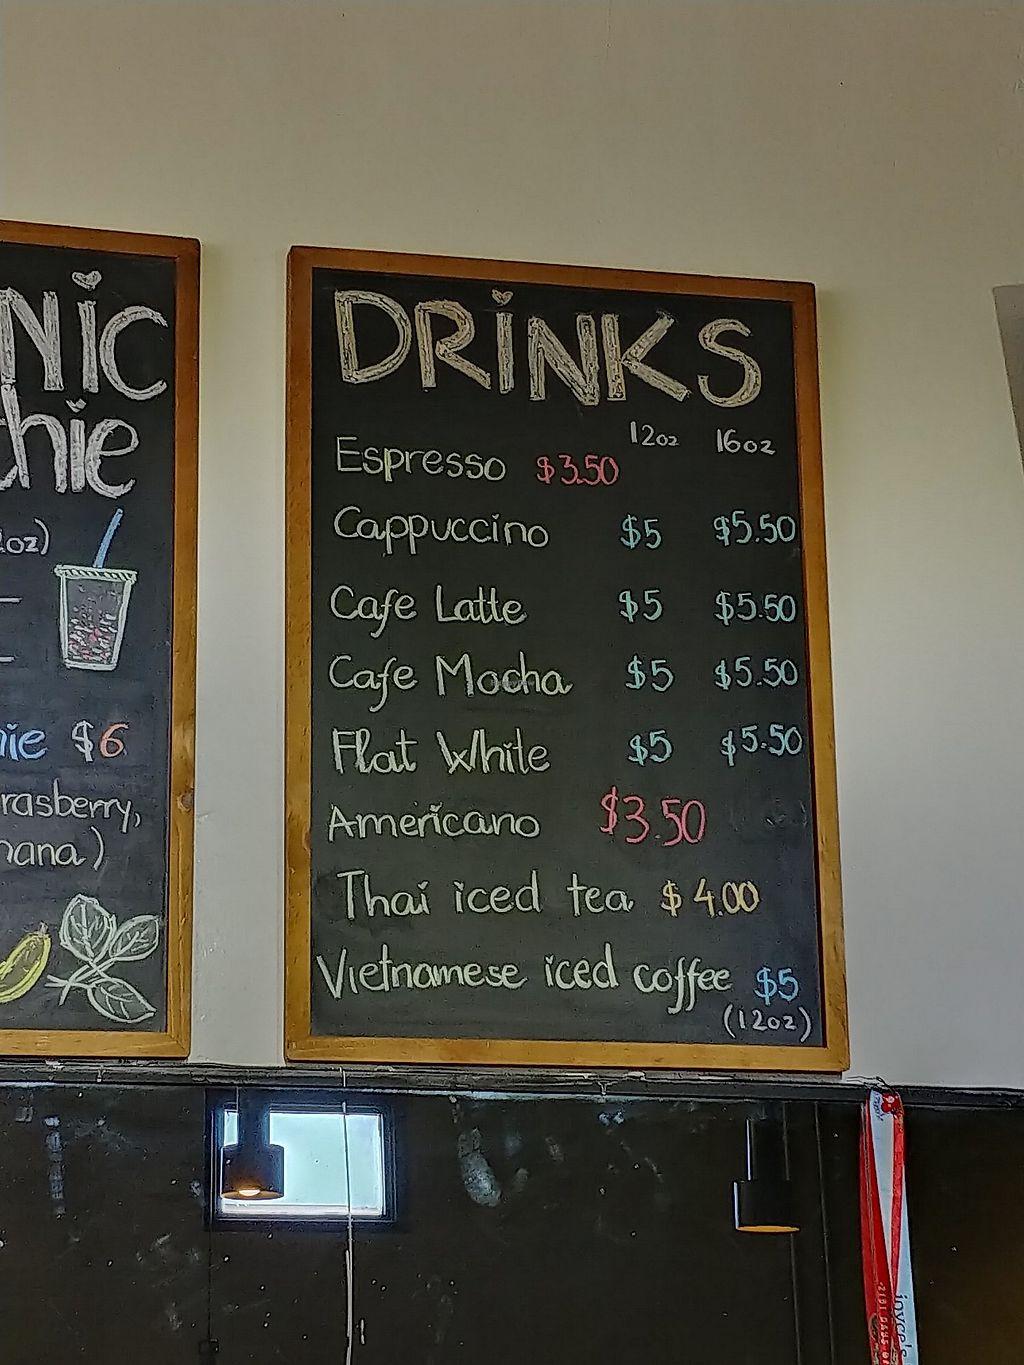 NiC
hie
oz)
ie $6
rasberry,
nana)
DRiNKS
12oz 16oz
Espresso $3.50
Cappuccino $5 $5.50
Cafe Latte $5 $5.50
Cafe Mocha $5 $5.50
Flat White $5 $5.50
Americano $3.50
Thai iced tea $4.00
Vietnamese iced coffee $5
(12oz)